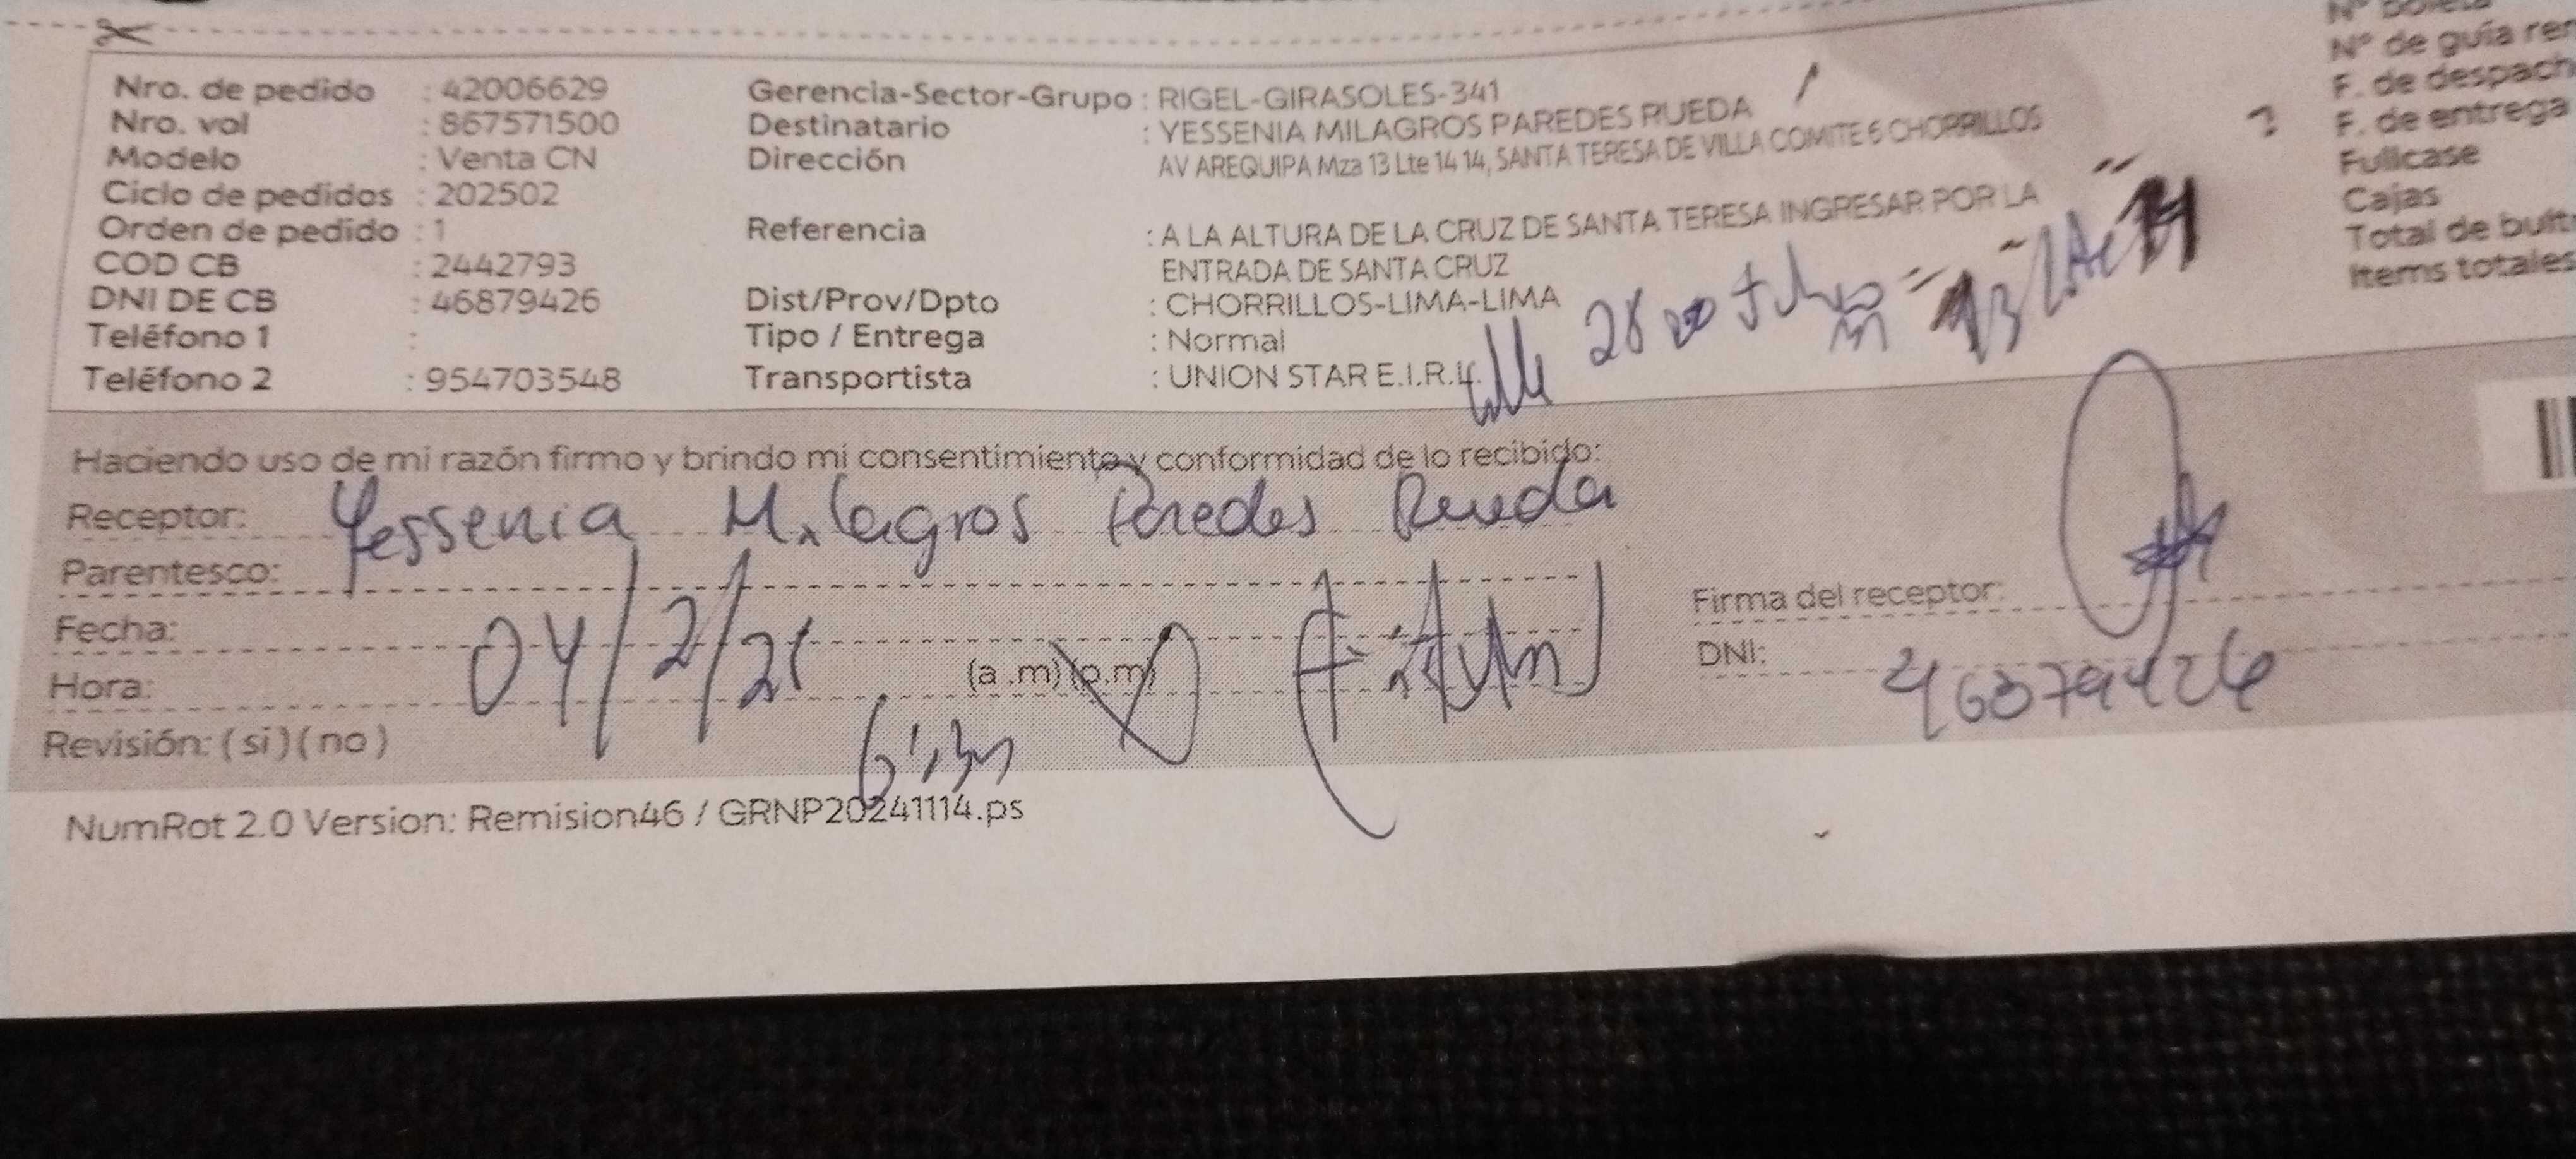 Nro. de pedido : 42006629
Nro. vol : 867571500
Modelo : Venta CN
Ciclo de pedidos : 202502
Orden de pedido : 1
COD CB : 2442793
DNI DE CB : 46879426
Teléfono 1 :
Teléfono 2 : 954703548
Gerencia-Sector-Grupo : RIGEL-GIRASOLES-341
Destinatario : YESSENIA MILAGROS PAREDES RUEDA
Dirección AV AREQUIPA Mza 13 Lte 14 14, SANTA TERESA DE VILLA COMITE 6 CHORRILLOS
Referencia : A LA ALTURA DE LA CRUZ DE SANTA TERESA INGRESAR POR LA
ENTRADA DE SANTA CRUZ
Dist/Prov/Dpto : CHORRILLOS-LIMA-LIMA
Tipo / Entrega : Normal
Transportista : UNION STAR E.I.R.L.
Nº de guía
F. de
F. de entrega
Fullcase
Cajas
Total de
Items totales
Calle 28
Haciendo uso de mi razón firmo y brindo mi consentimiento y conformidad de lo recibido:
Receptor: Yessenia Milagros Paredes Rueda
Parentesco:
Fecha: 04/2/25
Hora: (a .m) (p.m)
Revisión: ( si ) ( no )
Firma del receptor:
DNI: 46879426
NumRot 2.0 Version: Remision46 / GRNP20241114.ps